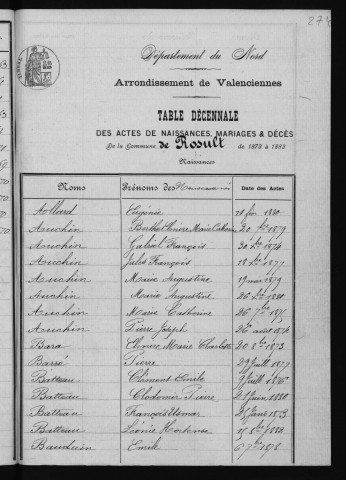 274
Département du Nord
Arrondissement de Valenciennes
TABLE DÉCENNALE
DES ACTES DE NAISSANCES, MARIAGES & DÉCÈS
De la Commune de Rosult de 1873 à 1883
Naissances
Noms Prénoms des Nouveaux-nés Date des Actes
Allard Eugénie 1880
Auchin Berthe Marie Catherine 20 1879
Auchin Gabriel François 30 1874
Auchin Jules François 18 1877
Auchin Marie Augustine 19 mars 1879
Auchin Marie Augustine 26 1880
Auchin Marie Catherine 26 7bre
Auchin Pierre Joseph 26 août 1874
Bara Marie Charlotte 20 8bre 1873
Barré Pierre 29 Juill 1877
Batteau Clément Emile 9 Juill 1876
Batteau Clodomir Pierre 21 Juin 1880
Batteau François 25 Janv 1873
Batteau Léonie Hortense 15 8bre
Bauduin Emile 6 7bre 1878